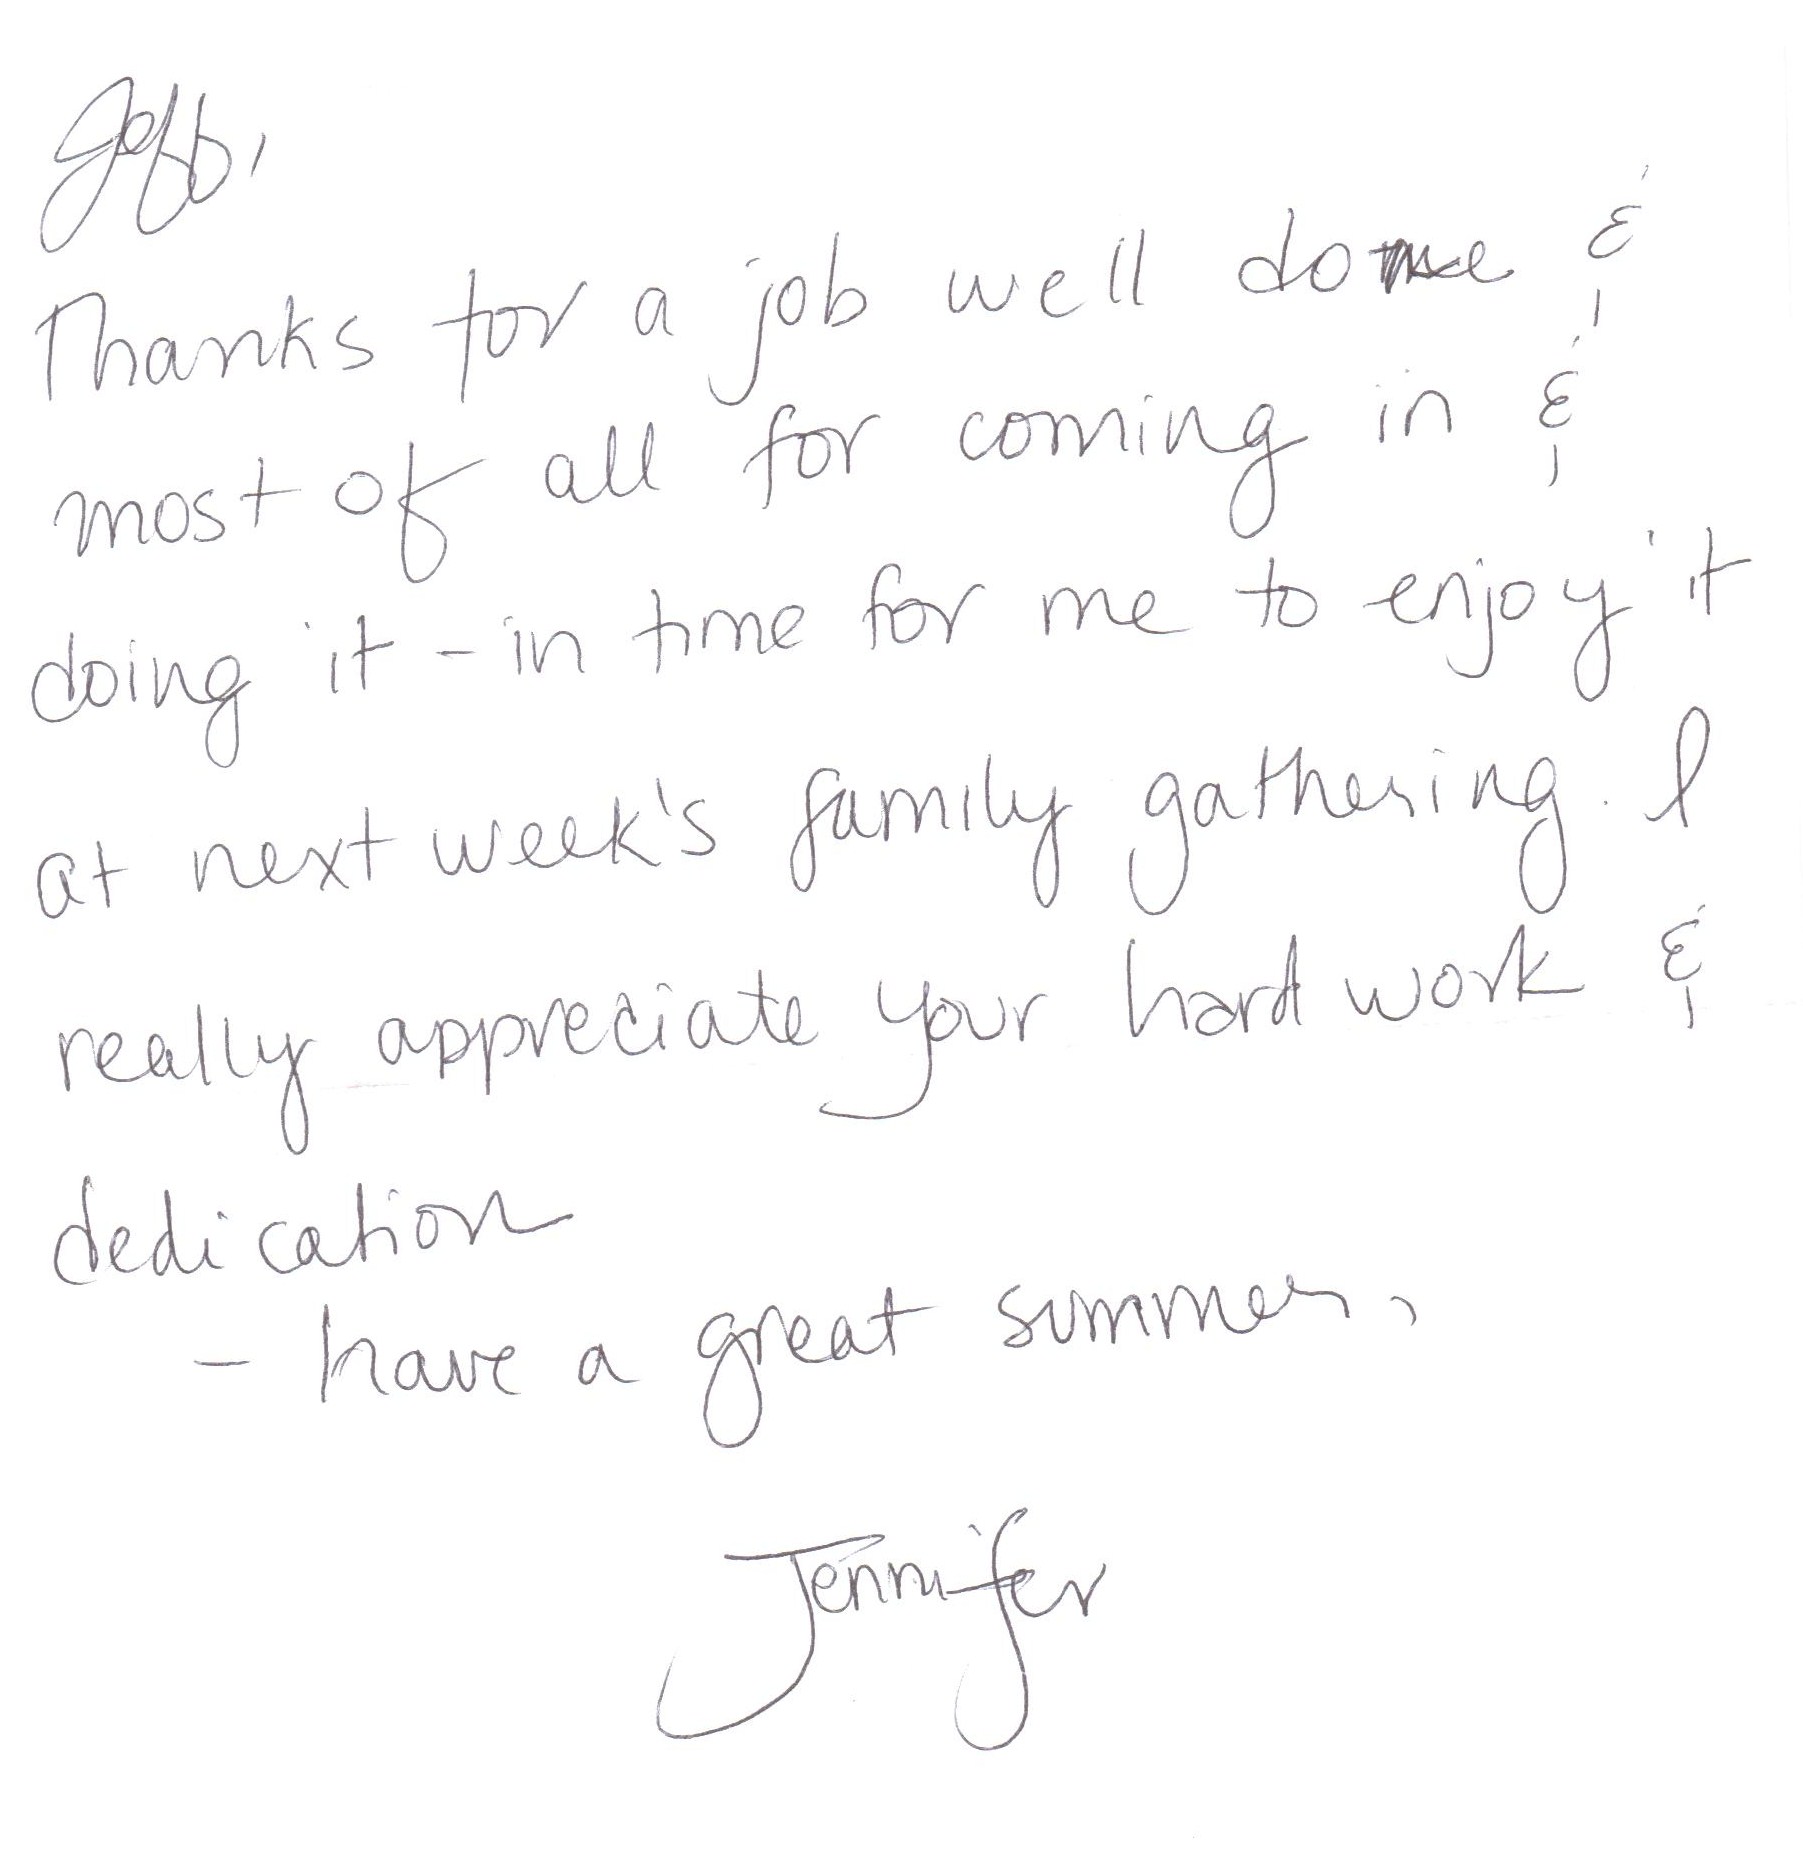 Jeff,
Thanks for a job well done &
most of all for coming in &
doing it - in time for me to enjoy it
at next week's family gathering. I
really appreciate your hard work &
dedication
- have a great summer,
Jennifer